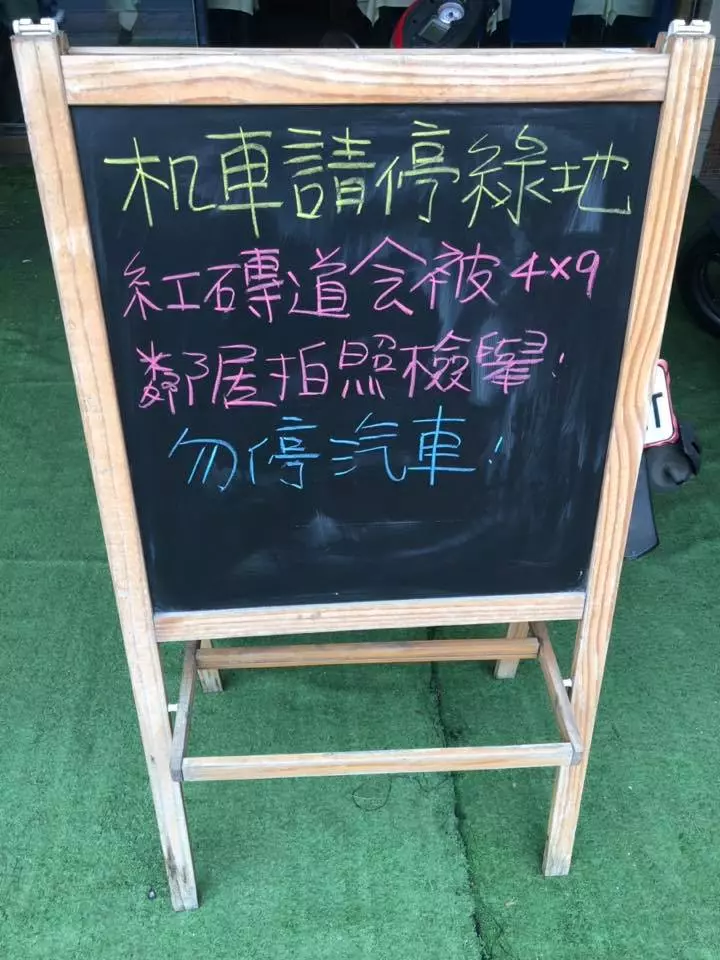 机車請停綠地
紅磚道会被4×9
鄰居拍照檢舉!
勿停汽車!